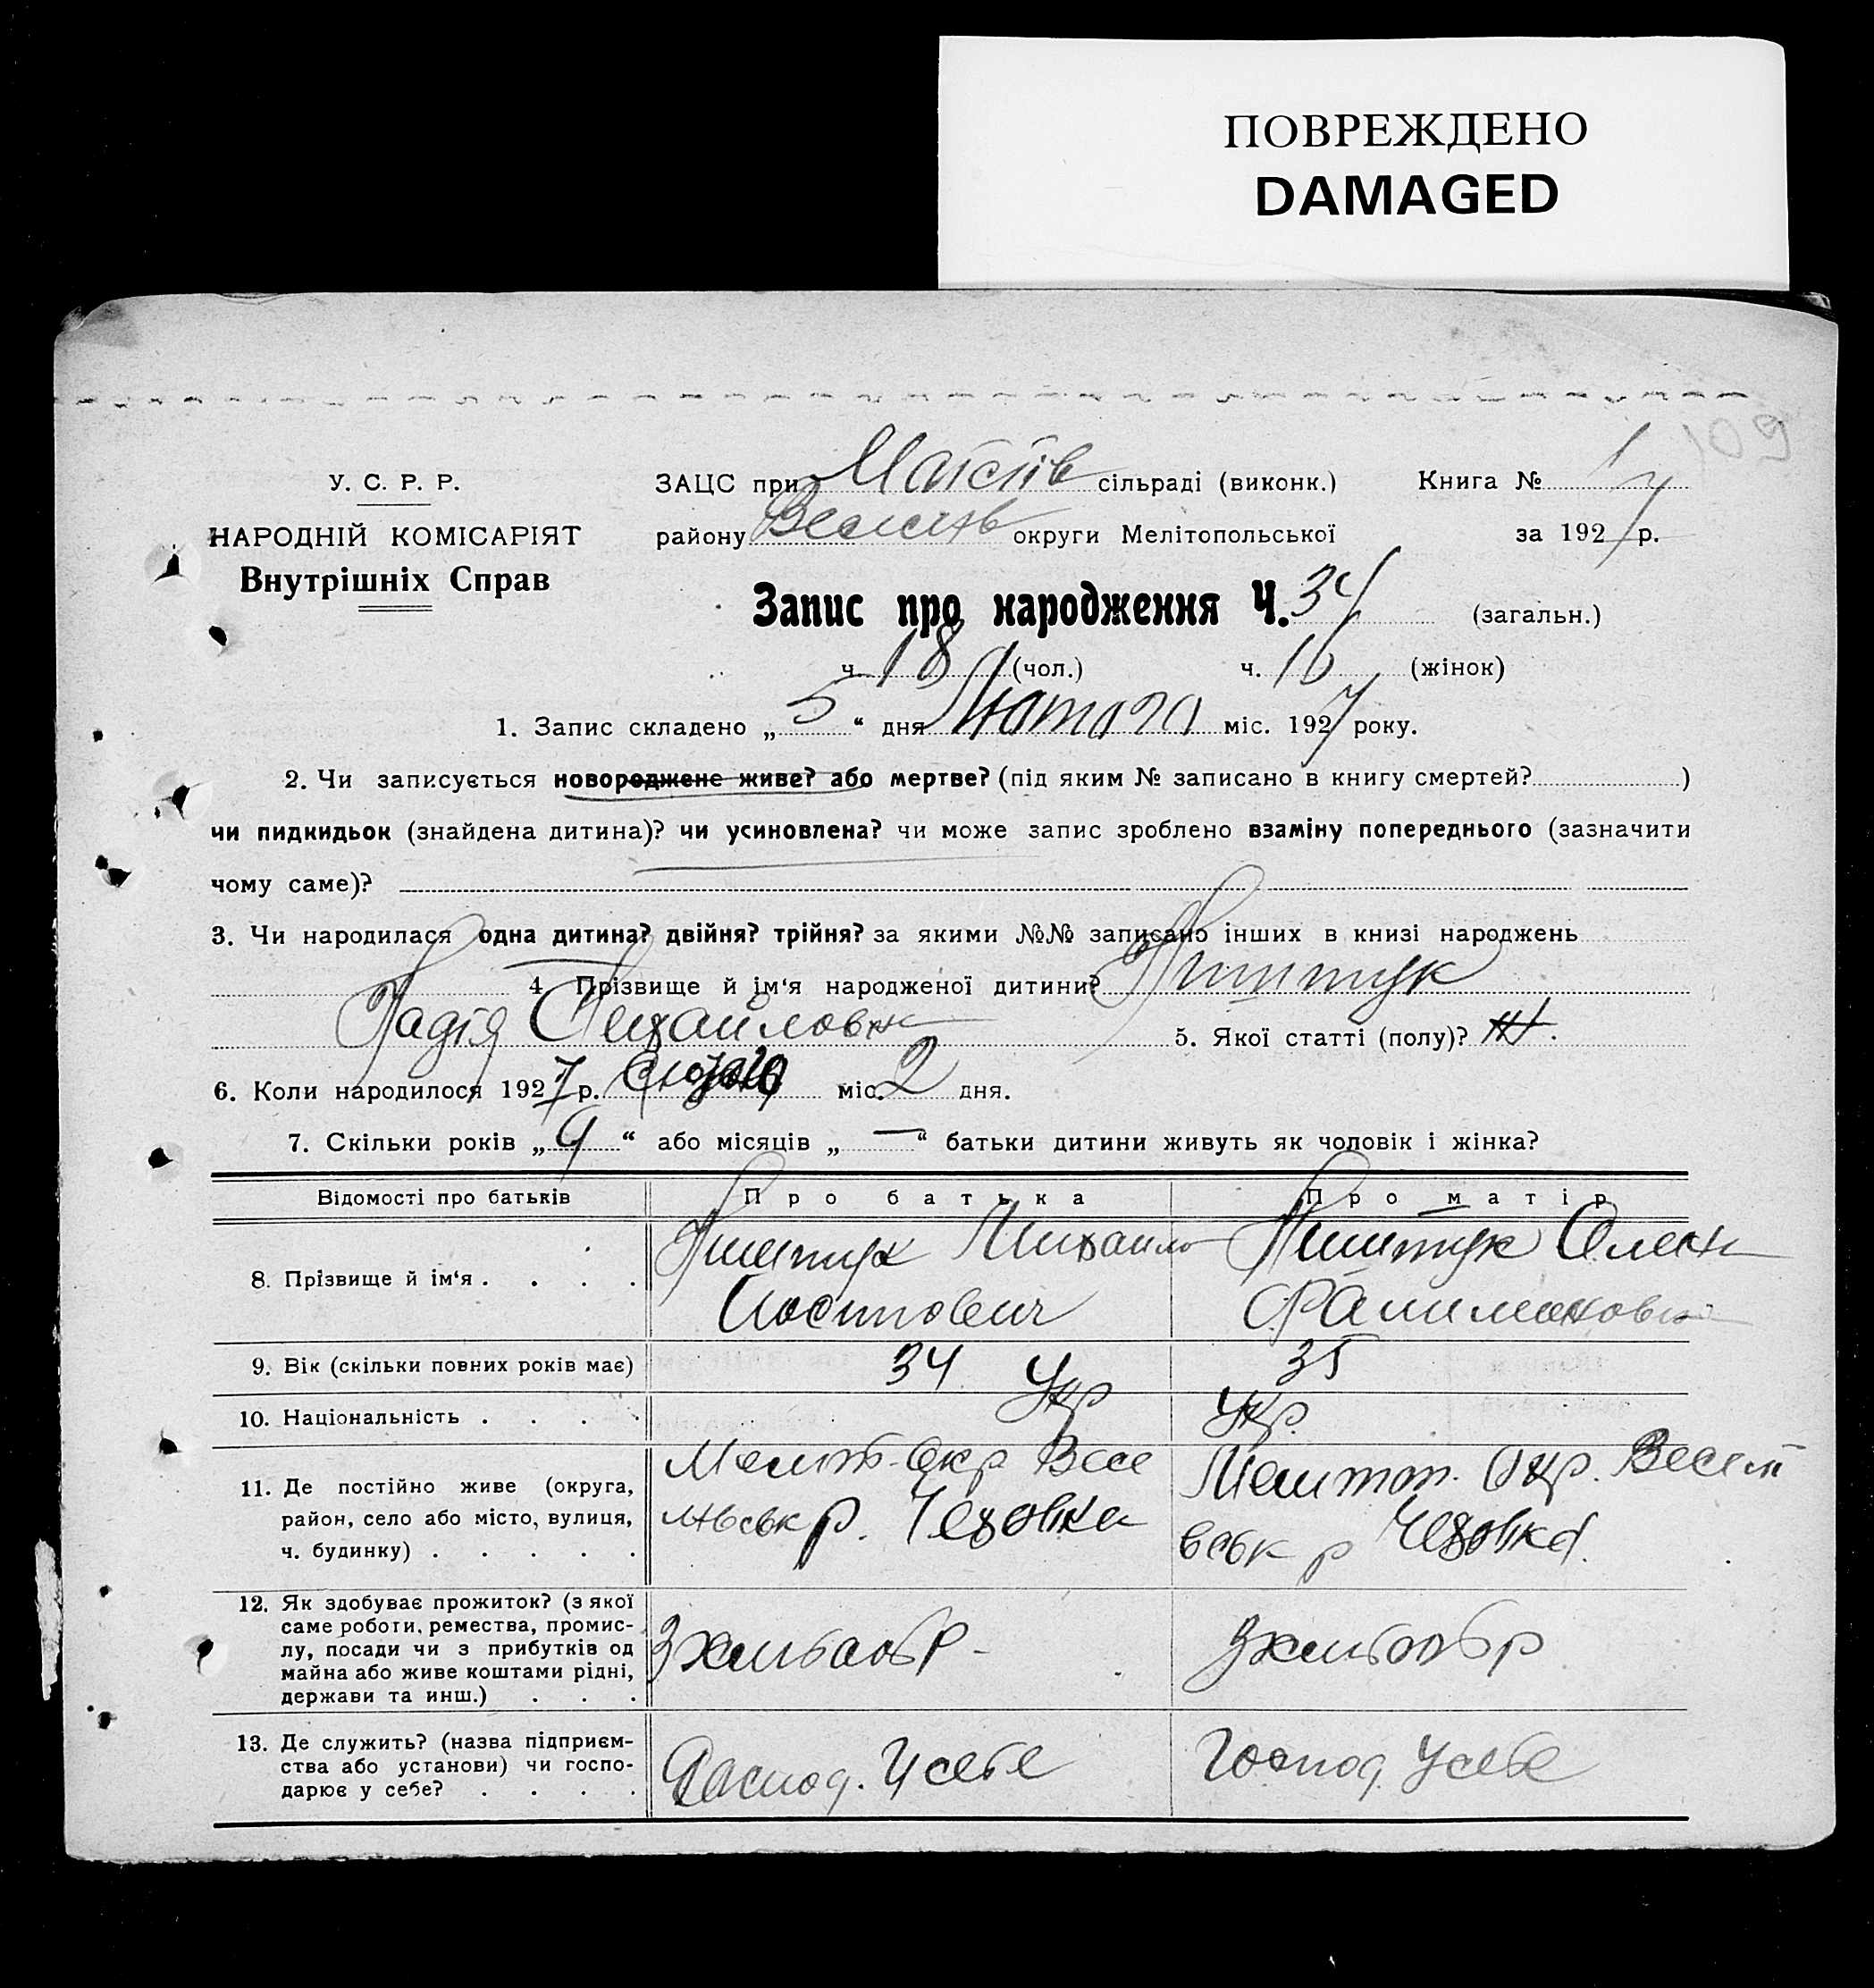 ПОВРЕЖДЕНО
DAMAGED
109
У. С. Р. Р.
НАРОДНІЙ КОМІСАРІЯТ
Внутрішніх Справ
ЗАЦС при сільраді (виконк.) Книга № 1
району округи Мелітопольської за 1927 р.
Запис про народження Ч. 34 (загальн.)
ч. 18 (чол.) ч. 16 (жінок)
1. Запис складено „ 5 “ дня Лютого міс. 1927 року.
2. Чи записується новороджене живе? або мертве? (під яким № записано в книгу смертей? )
чи пидкидьок (знайдена дитина)? чи усиновлена? чи може запис зроблено взаміну попереднього (зазначити
чому саме)?
3. Чи народилася одна дитина? двійня? трійня? за якими №№ записано інших в книзі народжень
4. Прізвище й ім‘я народженої дитини?
Надія Михайловн 5. Якої статті (полу)? Ж.
6. Коли народилося 1927 р. міс. 2 дня.
7. Скільки років „ 9 “ або місяців „ — “ батьки дитини живуть як чоловік і жінка?
Відомості про батьків Про батька Про матір
8. Прізвище й ім‘я . . . . Михаило Олена
9. Вік (скільки повних років має) 34 35
10. Національність . . . . Укр Укр.
11. Де постійно живе (округа, Меліт-Окр Весе Мелітоп. Окр.
район, село або місто, вулиця, р. Чеховка
ч. будинку) . . . . . р Чеховка.
12. Як здобуває прожиток? (з якої
саме роботи, ремества, промис-
лу, посади чи з прибутків од З хлібообр - З хлібообр
майна або живе коштами рідні,
держави та инш.) . . .
13. Де служить? (назва підприєм-
ства або установи) чи госпо- Господ. У себе Господ. У себе
дарює у себе? . . . .